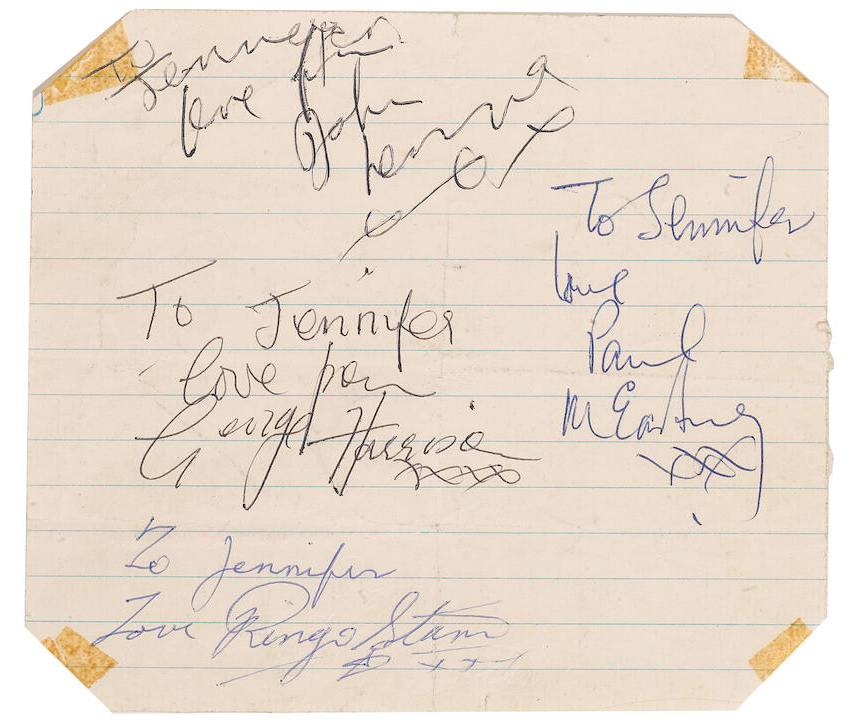 To Jennifer
love from
John
Lennon
x x
To Jennifer
love
Paul
McCartney
xxx
To Jennifer
love from
George Harrison
xxxx
To Jennifer
Love Ringo Starr
xxx